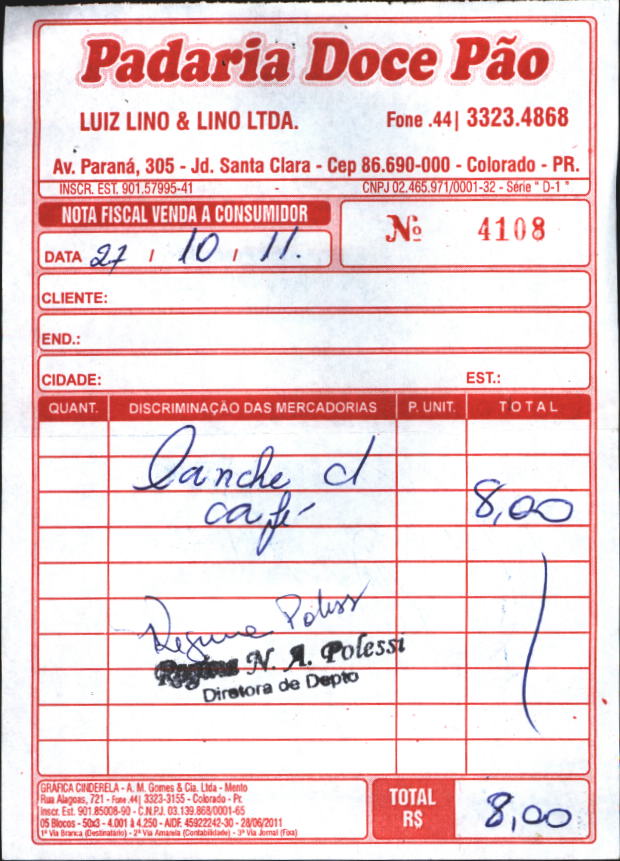 Padaria Doce Pão
LUIZ LINO & LINO LTDA. Fone .44| 3323.4868
Av. Paraná, 305 - Jd. Santa Clara - Cep 86.690-000 - Colorado - PR.
INSCR. EST. 901.57995-41 - CNPJ 02.465.971/0001-32 - Série " D-1 "
NOTA FISCAL VENDA A CONSUMIDOR
Nº 4108
DATA 27 / 10 / 11.
CLIENTE:
END.:
CIDADE: EST.:
QUANT. DISCRIMINAÇÃO DAS MERCADORIAS P. UNIT. TOTAL
lanche d
café 8,00
Regina Poless
Regina N. A. Polessi
Diretora de Depto
GRÁFICA CINDERELA - A. M. Gomes & Cia. Ltda - Mento
Rua Alagoas, 721 - Fone .44| 3323-3155 - Colorado - Pr.
Inscr. Est. 901.85008-90 - C.N.P.J. 03.139.868/0001-65
05 Blocos - 50x3 - 4.001 à 4.250 - AIDF. 45922242-30 - 28/06/2011
1ª Via Branca (Destinatário) - 2ª Via Amarela (Contabilidade) - 3ª Via Jornal (Fixa)
TOTAL
R$ 8,00